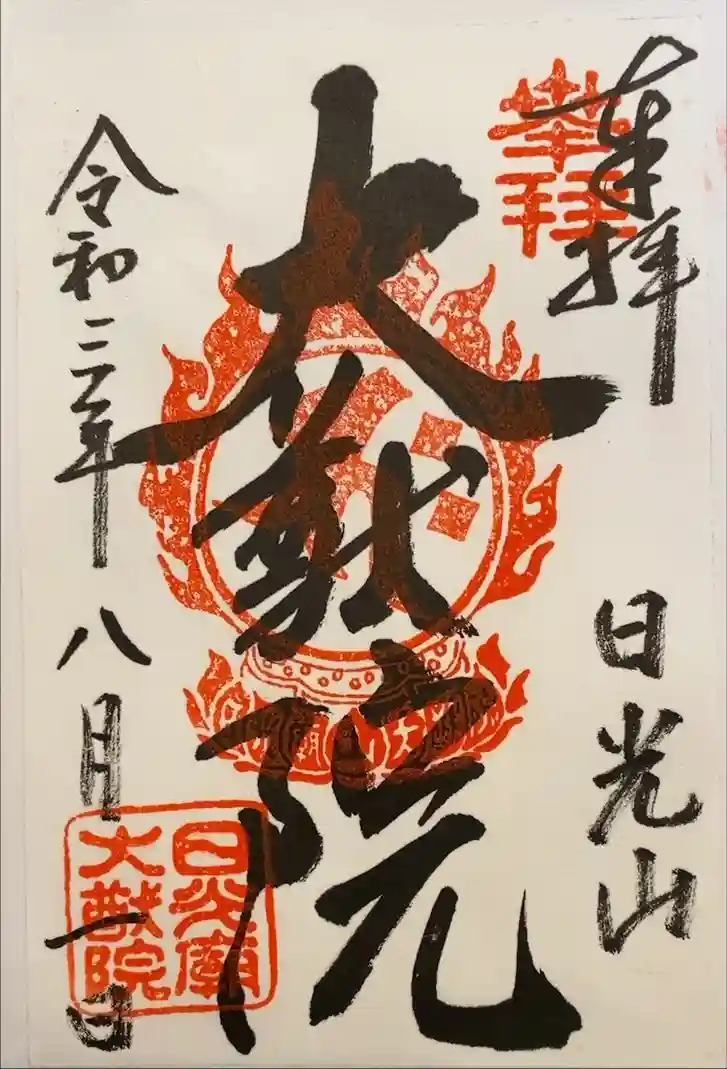 奉拝
日光山
大猷院
令和三年八月一日
日光廟
大猷院